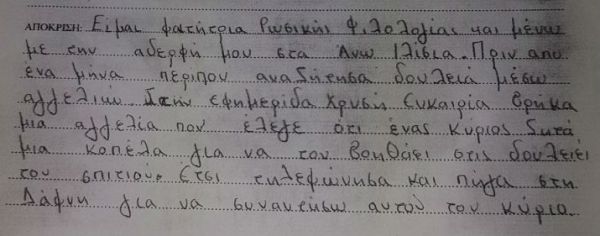 ΑΠΟΚΡΙΣΗ: Είμαι φοιτήτρια Ρωσικής Φιλολογίας και μένω
με την αδερφή μου στα Άνω Ιλίσια. Πριν από
ένα μήνα περίπου αναζήτησα δουλειά μέσω
αγγελιών. Στην εφημερίδα Χρυσή Ευκαιρία βρήκα
μια αγγελία που έλεγε ότι ένας κύριος ζητά
μια κοπέλα για να τον βοηθάει στις δουλειές
του σπιτιού. Έτσι τηλεφώνησα και πήγα στη
Δάφνη για να συναντήσω αυτόν τον κύριο.